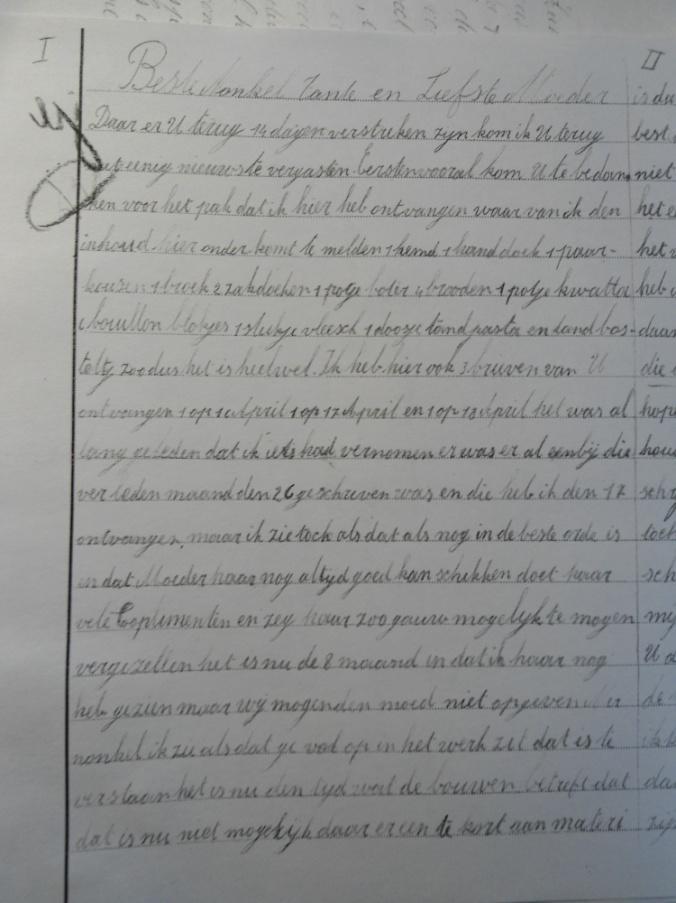 I
II
Beste Nonkel Tante en Liefste Moeder
Daar er U terug 14 dagen verstreken zyn kom ik U terug
eenig nieuws te vergasten Eerst en vooral kom U te bedan
ken voor het pak dat ik hier heb ontvangen waar van ik den
inhoud hier onder komt te melden 1 hemd 1 hand doek 1 paar-
kousen 1 broek 2 zakdoeken 1 potje boter 4 brooden 1 potje kwatta
bouillon blokjes 1 stukje vleesch 1 doosje tandpasta en tand bos-
teltj zoo dus het is heel wel. Ik heb hier ook 3 brieven van U
ontvangen 1 op 1 April 1 op 12 April en 1 op 13 April het was al
lang geleden dat ik iets had vernomen er was er al een bij die
verleden maand den 26 geschreven was en die heb ik den 17
ontvangen, maar ik zie toch als dat als nog in de beste orde is
en dat Moeder haar nog altyd goed kan schikken doet haar
vele Coplimenten en zey haar zoo gauw mogelyk te mogen
vergezellen het is nu de 8 maand in dat ik haar nog
heb gezien maar wy mogen den moed niet opgeven
nonkel ik zie als dat ge vol op in het werk zit dat is te
verstaan het is nu den tyd wat de bouwen betreft dat
dat is nu niet mogelyk daar er een te kort aan materi